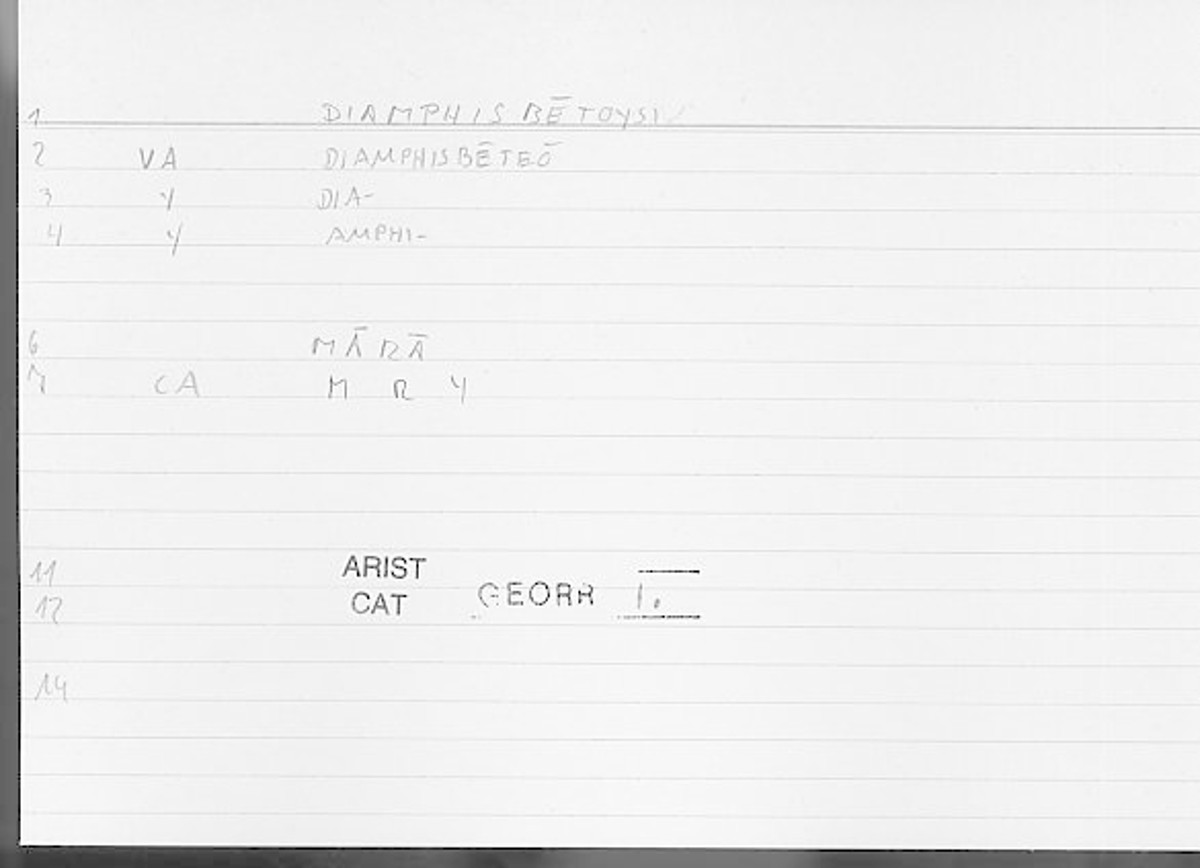 1 DIAMPHISBĒTOYSI
2 VA DIAMPHISBĒTEŌ
3 Y DIA-
4 Y AMPHI-
6 MĀRĀ
7 CA M R Y
11 ARIST
12 CAT GEORR 1.
14